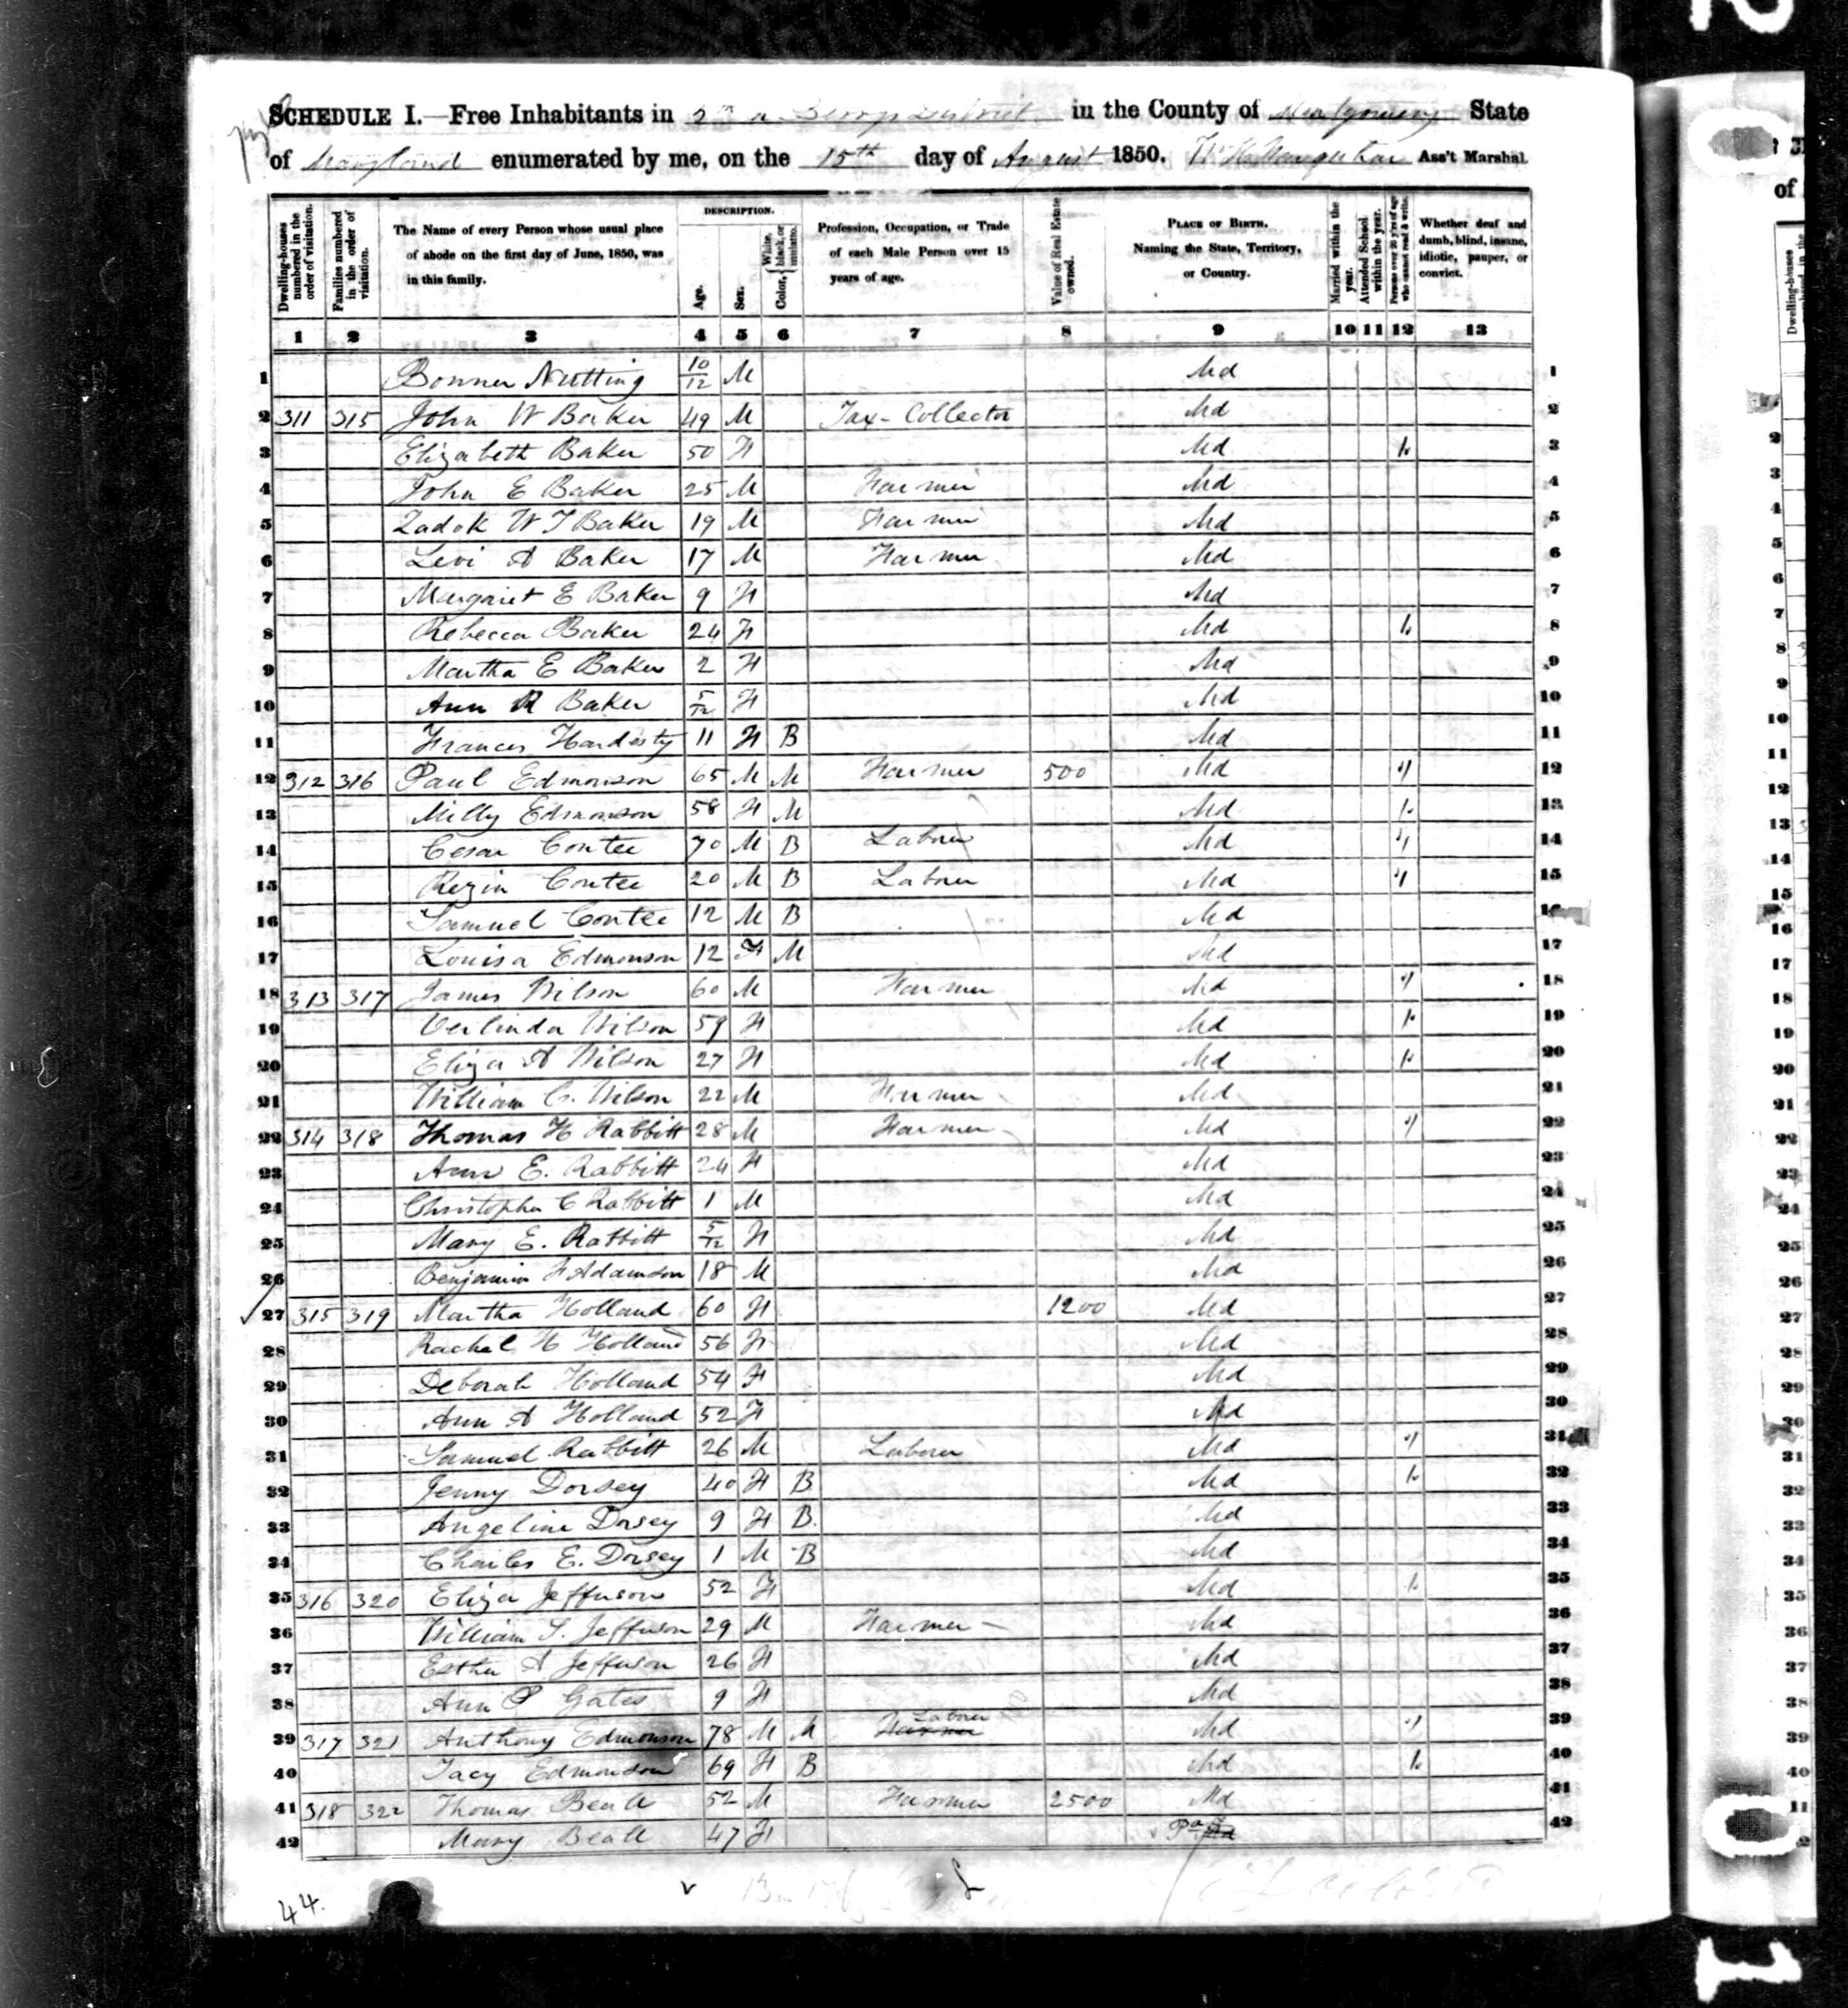 SCHEDULE I.—Free Inhabitants in District in the County of Montgomery State
of Maryland enumerated by me, on the 15th day of August 1850. Ass't Marshal.
Dwelling-houses numbered in the order of visitation.
Families numbered in the order of visitation.
The Name of every Person whose usual place of abode on the first day of June, 1850, was in this family.
DESCRIPTION.
Age.
Sex.
Color, { White, black, or mulatto.
Profession, Occupation, or Trade of each Male Person over 15 years of age.
Value of Real Estate owned.
PLACE OF BIRTH. Naming the State, Territory, or Country.
Married within the year.
Attended School within the year.
Persons over 20 y'rs of age who cannot read & write.
Whether deaf and dumb, blind, insane, idiotic, pauper, or convict.
1 2 3 4 5 6 7 8 9 10 11 12 13
1 Bonner Nutting 10/12 M Md 1
2 311 315 John W Baker 49 M Tax-Collector Md 2
3 Elizabeth Baker 50 F Md 1 3
4 John E Baker 25 M Farmer Md 4
5 Zadok W T Baker 19 M Farmer Md 5
6 Levi A Baker 17 M Farmer Md 6
7 Margaret E Baker 9 F Md 7
8 Rebecca Baker 24 F Md 1 8
9 Martha E Baker 2 F Md 9
10 Ann R Baker 5/12 F Md 10
11 Frances Hardesty 11 F B Md 11
12 312 316 Paul Edmonson 65 M M Farmer 500 Md 1 12
13 Milly Edmonson 58 F M Md 1 13
14 Cesar Contee 70 M B Laborer Md 1 14
15 Rezin Contee 20 M B Laborer Md 1 15
16 Samuel Contee 12 M B Md 16
17 Louisa Edmonson 12 F M Md 17
18 313 317 James Wilson 60 M Farmer Md 1 18
19 Verlinda Wilson 59 F Md 1 19
20 Eliza A Wilson 27 F Md 1 20
21 William C. Wilson 22 M Farmer Md 21
22 314 318 Thomas H Rabbitt 28 M Farmer Md 1 22
23 Ann E. Rabbitt 24 F Md 23
24 Christopher C Rabbitt 1 M Md 24
25 Mary E. Rabbitt 5/12 F Md 25
26 Benjamin F Adamson 18 M Md 26
27 315 319 Martha Holland 60 F 1200 Md 27
28 Rachel H Holland 56 F Md 28
29 Deborah Holland 54 F Md 29
30 Ann A Holland 52 F Md 30
31 Samuel Rabbitt 26 M Laborer Md 1 31
32 Jenny Dorsey 40 F B Md 1 32
33 Angeline Dorsey 9 F B Md 33
34 Charles E. Dorsey 1 M B Md 34
35 316 320 Eliza Jefferson 52 F Md 1 35
36 William S. Jefferson 29 M Farmer Md 36
37 Esther A Jefferson 26 F Md 37
38 Ann P Gates 9 F Md 38
39 317 321 Anthony Edmonson 78 M M Farmer Laborer Md 1 39
40 Tacy Edmonson 69 F B Md 1 40
41 318 322 Thomas Beall 52 M Farmer 2500 Md 41
42 Mary Beall 47 F Pa 42
44.